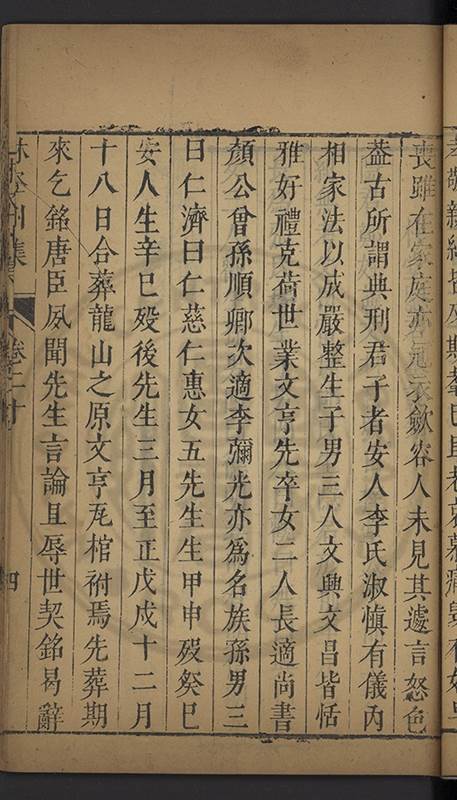 喪雖在家庭亦冠衣歛容人未見其遽言怒色
葢古所謂典刑君子者安人李氏淑慎有儀內
相家法以成嚴整生子男三人文興文昌皆恬
雅好禮克荷世業文亨先卒女二人長適尚書
顏公曾孫順卿次適李彌光亦為名族孫男三
曰仁濟曰仁慈仁惠女五先生生甲申歿癸巳
安人生辛巳歿後先生三月至正戊戌十二月
十八日合葬龍山之原文亨庀棺祔焉先葬期
來乞銘唐臣夙聞先生言論且辱世契銘曷辭
林 州集
卷二十
四